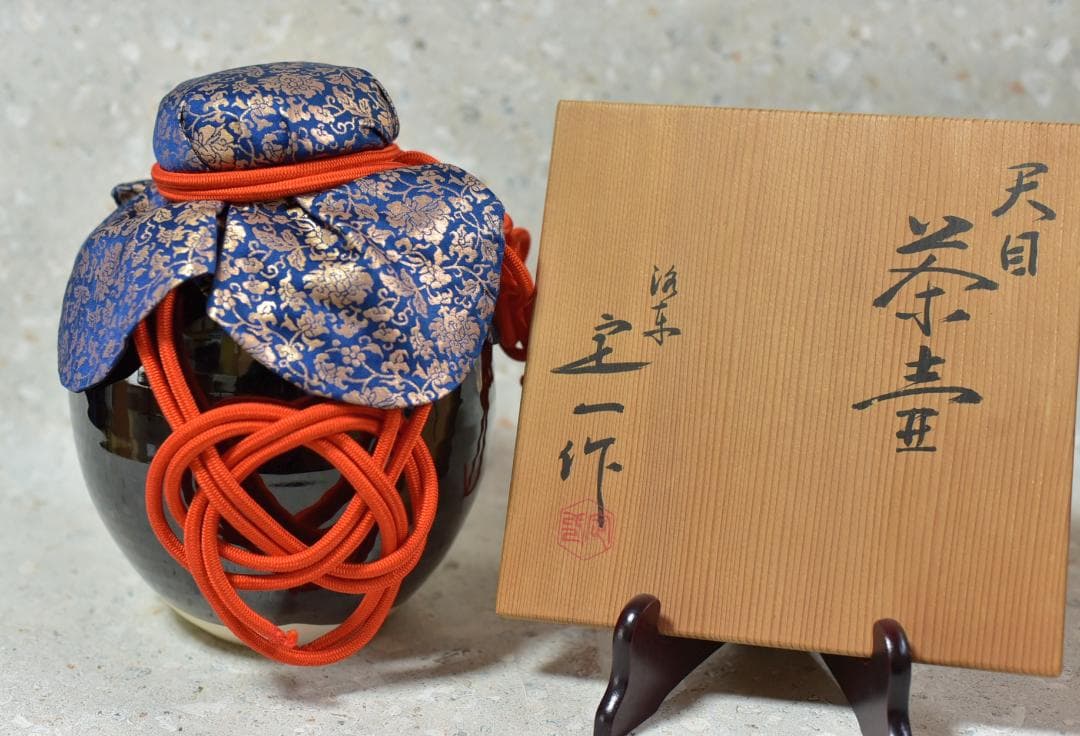 天目
茶壷
洛東
定一作